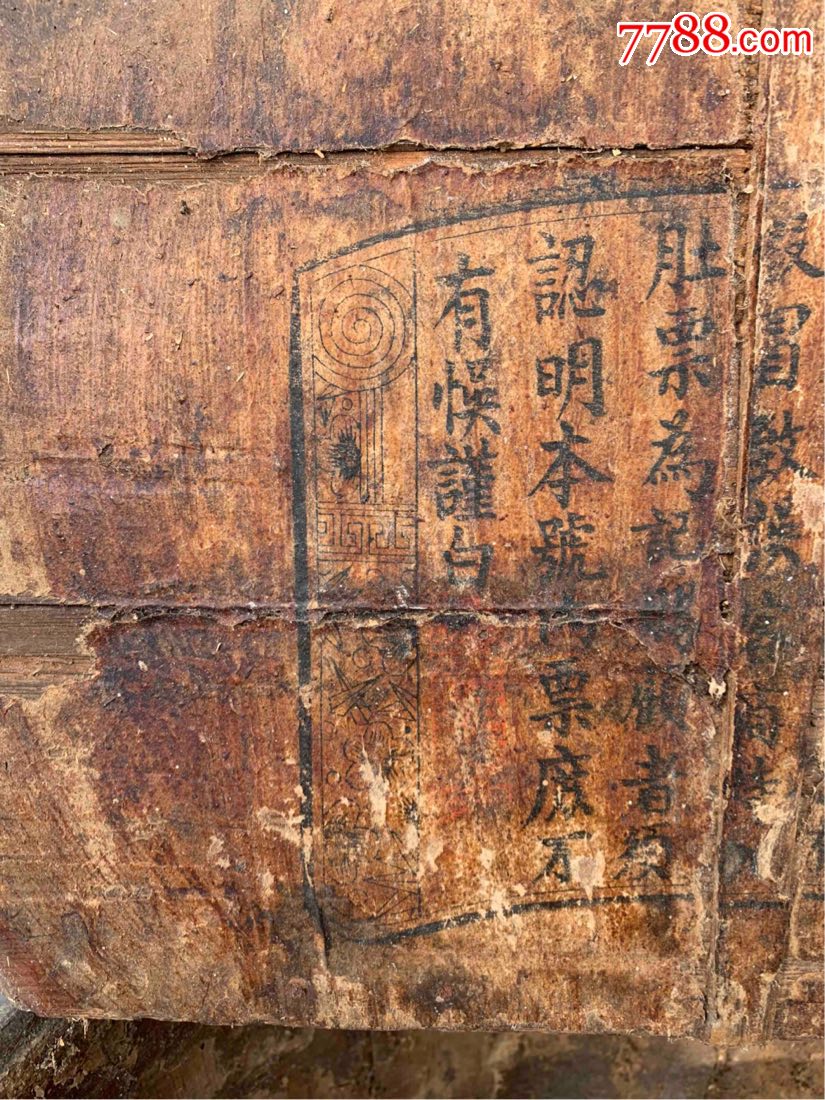 7788.com
冒
肚票為記賜顧者須
認明本號內票庶不
有悞謹白